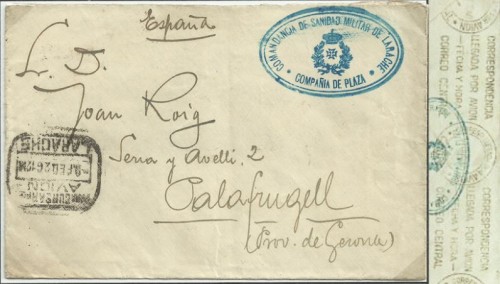 España
COMANDANCIA DE SANIDAD MILITAR DE LARACHE
COMPAÑIA DE PLAZA
Sr. D.
Joan Roig
Serra y Avelli, 2
Palafrugell
(Prov. de Gerona)
AVION
LARACHE
CORRESPONDENCIA
LLEGADA POR AVION
FECHA Y HORA
CORREO CENTRAL
CORRESPONDENCIA
LLEGADA POR AVION
FECHA Y HORA
CORREO CENTRAL